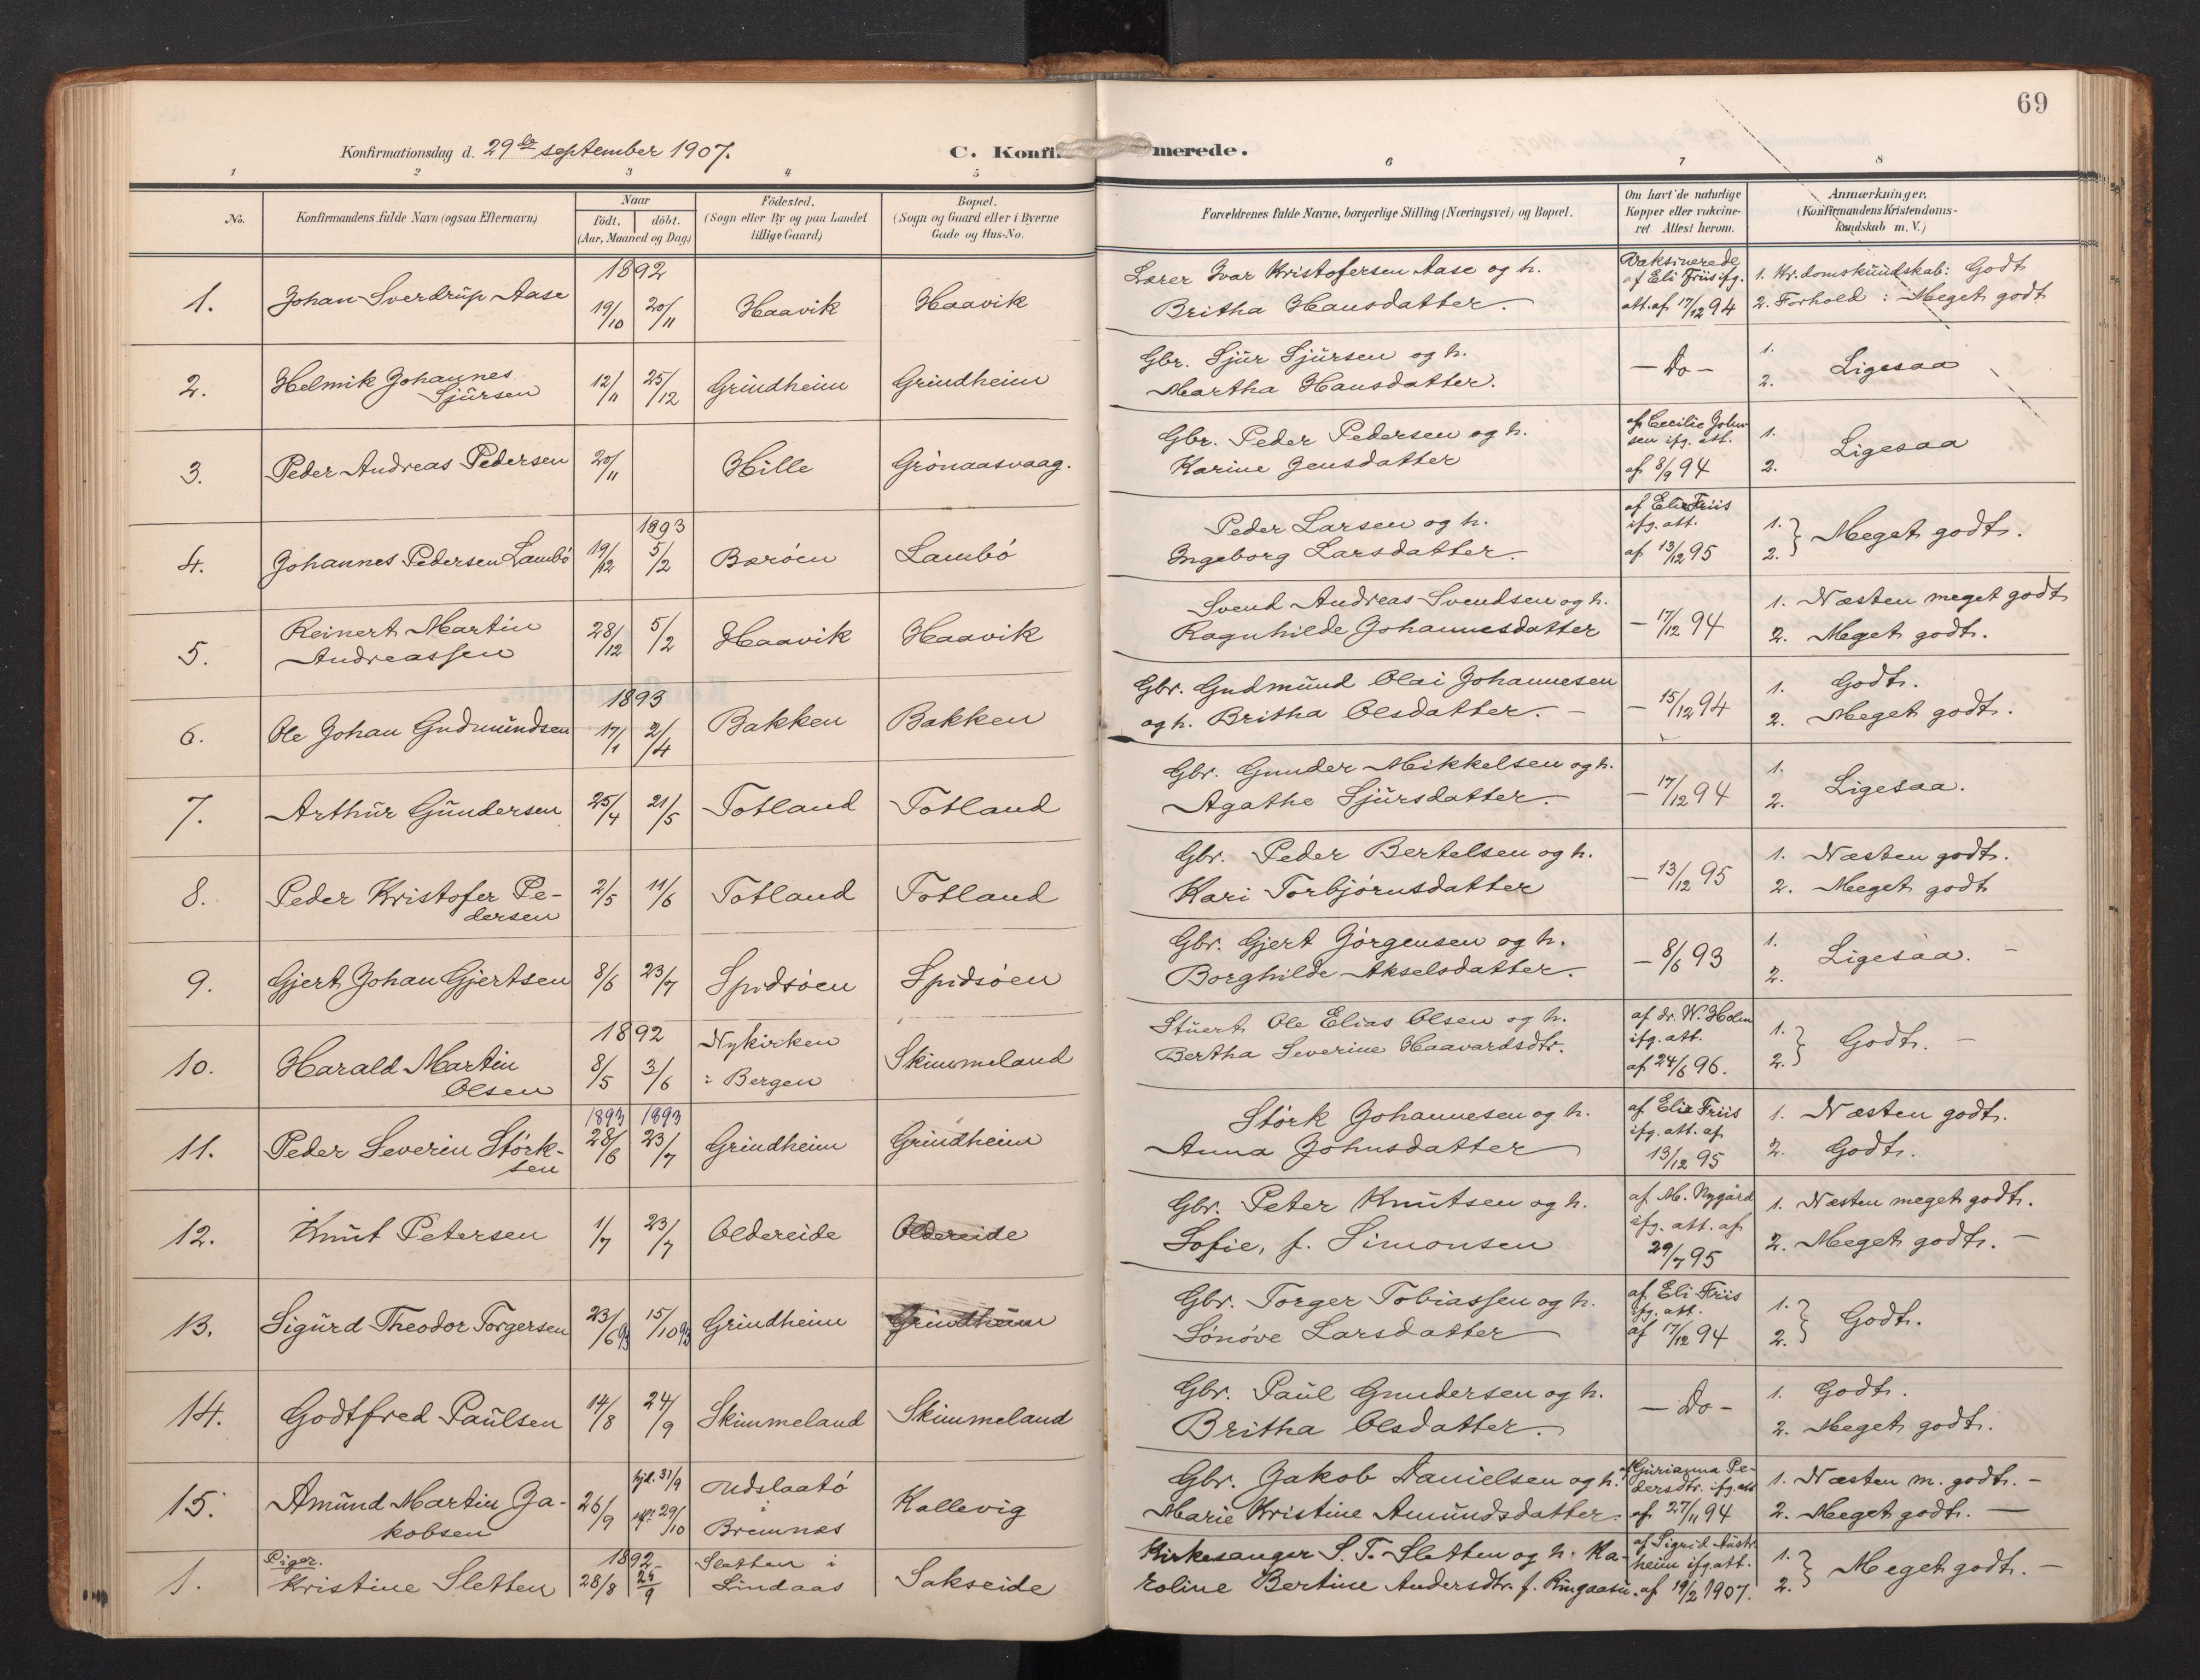 69
Konfirmationsdag d. 29de september 1907.
C. Konfirmerede.
1 2 3 4 5 6 7 8
No.
Konfirmandens fulde Navn (ogsaa Efternavn)
Naar
født. døbt.
(Aar, Maaned og Dag)
Fødested.
(Sogn eller By og paa Landet
tillige Gaard)
Bopæl.
(Sogn og Gaard eller i Byerne
Gade og Hus-No.
Forældrenes fulde Navne, borgerlige Stilling (Næringsvei) og Bopæl.
Om havt de naturlige
Kopper eller vakcine-
ret. Attest herom.
Anmærkninger,
(Konfirmandens Kristendoms-
kundskab m. V.)
1892
1. Johan Sverdrup Aase 19/10 20/11 Haavik Haavik
Lærer Ivar Kristofersen Aase og h.
Britha Hansdatter.
Vaksinerede
af Eli Friis ifg.
att. af 17/12 94
1. Kr.domskundskab: Godt
2. Forhold: Meget godt
2. Helmik Johannes
Sjursen 12/11 25/12 Grindheim Grindheim
Gbr. Sjur Sjursen og h.
Martha Hansdatter.
- Do -
1.
2. Ligesaa
3. Peder Andreas Pedersen 20/11 Hille Grønaasvaag.
Gbr. Peder Pedersen og h.
Karine Jensdatter
af Cecilie John-
sen ifg. att.
af 8/9 94
1.
2. Ligesaa
1893
4. Johannes Pedersen Lambø 19/12 5/2 Bærøen Lambø
Peder Larsen og h.
Ingeborg Larsdatter.
af Elie Friis
ifg. att.
af 13/12 95
1.
2. Meget godt.
5. Reinert Martin
Andreassen 28/12 5/2 Haavik Haavik
Svend Andreas Svendsen og h.
Ragnhilde Johannesdatter
- 17/12 94
1. Næsten meget godt
2. Meget godt.
1893
6. Ole Johan Gudmundsen 17/1 2/4 Bakken Bakken
Gbr. Gudmund Olai Johannesen
og h. Britha Olsdatter. -
- 15/12 94
1. Godt.
2. Meget godt.
7. Arthur Gundersen 25/4 21/5 Totland Totland
Gbr. Gunder Mikkelsen og h.
Agathe Sjursdatter.
- 17/12 94
1.
2. Ligesaa.
8. Peder Kristofer Pe-
dersen 2/5 11/6 Totland Totland
Gbr. Peder Bertelsen og h.
Kari Torbjørnsdatter
- 13/12 95
1. Næsten godt.
2. Meget godt
9. Gjert Johan Gjertsen 8/6 23/7 Spidsøen Spidsøen
Gbr. Gjert Jørgensen og h.
Borghilde Akselsdatter.
- 8/6 93
1.
2. Ligesaa. -
1892
10. Harald Martin
Olsen 8/5 3/6 Nykirken
i Bergen Skimmeland
Stuert Ole Elias Olsen og h.
Bertha Severine Haavardsdtr.
af dr. W. Holm
ifg. att.
af 24/6 96.
1.
2. Godt. -
1893 1893
11. Peder Severin Størk-
sen 28/6 23/7 Grindheim Grindheim
Størk Johannesen og h.
Anna Johnsdatter
af Elie Friis
ifg. att. af
13/12 95
1. Næsten godt.
2. Godt.
12. Knut Petersen 1/7 23/7 Oldereide Oldereide
Gbr. Peter Knutsen og h.
Sofie, f. Simonsen
af M. Nygård
ifg. att. af
29/7 95
1. Næsten meget godt.
2. Meget godt. -
13. Sigurd Theodor Torgersen 23/6 93 15/10 93 Grindheim Grindheim
Gbr. Torger Tobiassen og h.
Sønøve Larsdatter
af Eli Friis
ifg. att.
af 17/12 94
1.
2. Godt.
14. Godtfred Paulsen 14/8 24/9 Skimmeland Skimmeland
Gbr. Paul Gundersen og h.
Britha Olsdatter.
- Do -
1. Godt.
2. Meget godt.
15. Amund Martin Ja-
kobsen 26/9 hjd. 31/9 29/10 Udslaatø
i
Bremnæs Kallevig
Gbr. Jakob Danielsen og h.
Marie Kristine Amundsdatter.
af Gurianna Pe-
dersdtr. ifg. att
af 27/11 94
1. Næsten m. godt. -
2. Meget godt. -
Piger. 1892
1. Kristine Sletten 28/8 25/9 Sletten i
Lindaas Sakseide
Kirkesanger S. T. Sletten og h. Ka-
roline Bertine Andersdtr. f.
af Sigrid Austr-
heim ifg att.
af 19/2 1907.
1.
2. Meget godt. -